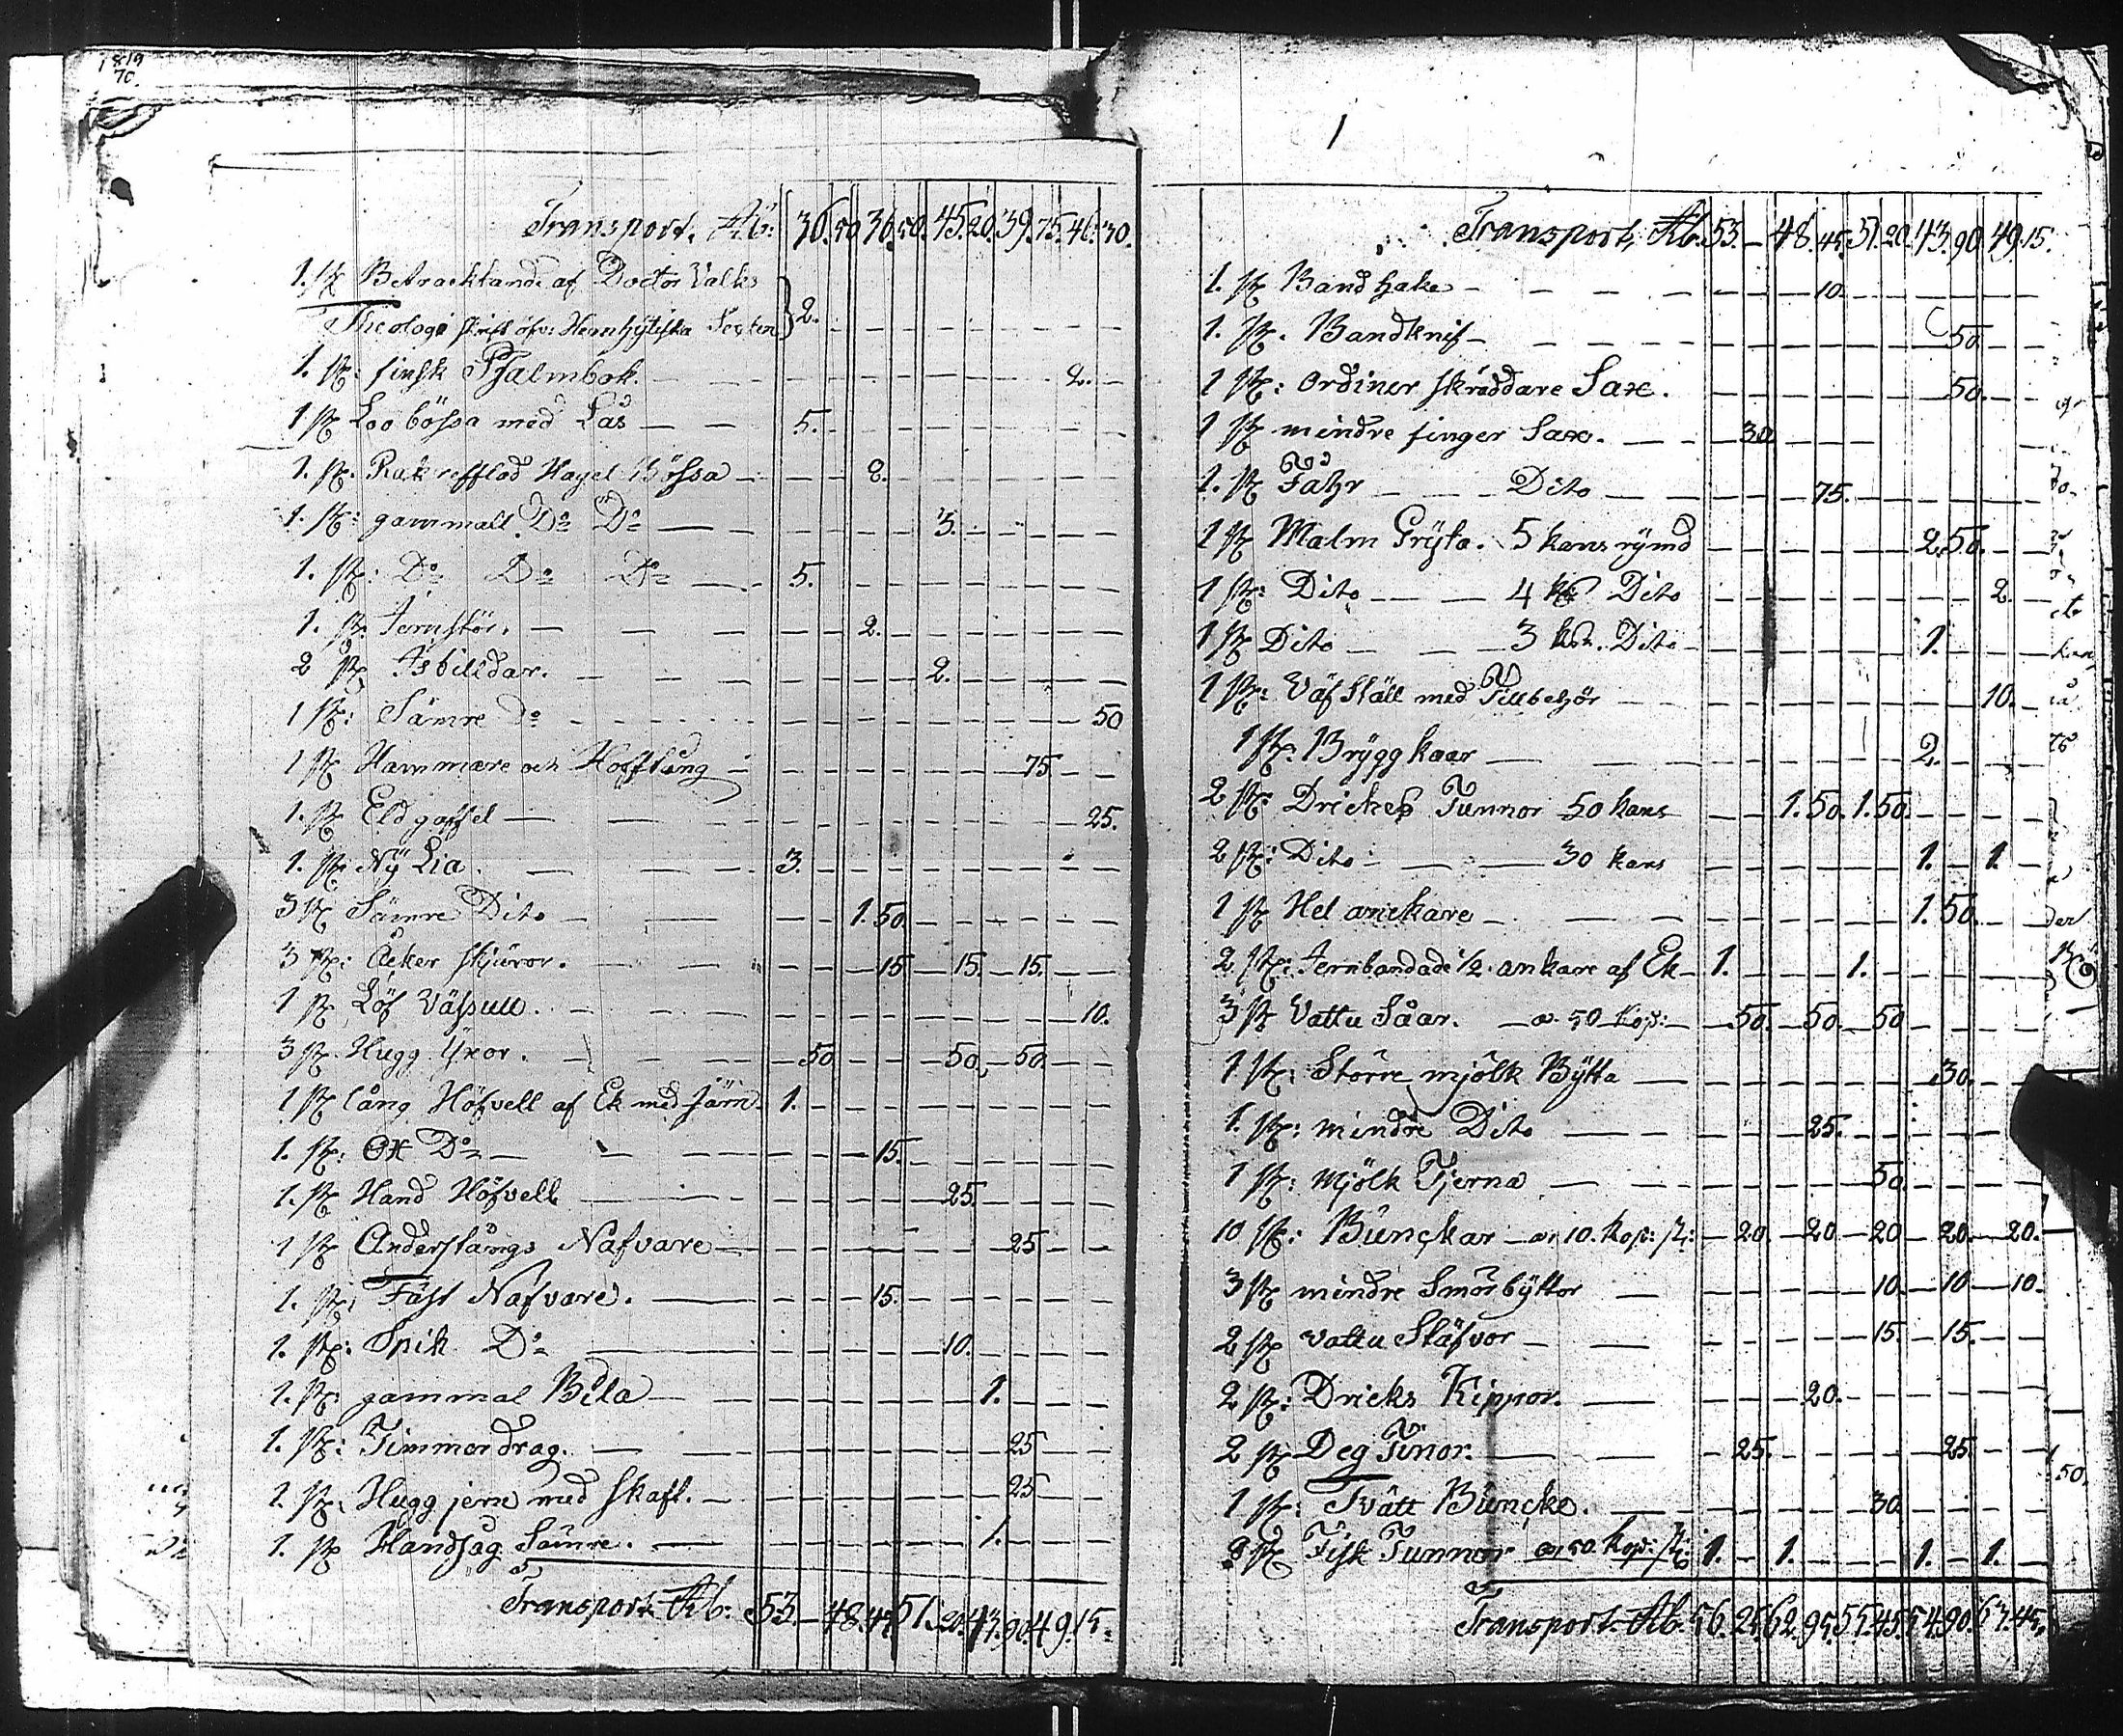 1819
70
Transport. Rb: 36. 50 36. 50. 45. 20. 39. 75. 46. 30.
1. st Betracktande af Doctor Valks
Theologi skrift öfv: Hernhytiska Secten 2.
1. st: finsk Psalmbok. 2.
1 st Loo bössa med Lås 5.
1. st. Rak refflad Hagel Bössa 2.
1. st: gammalt Do Do 3.
1. st: Do Do Do 5.
1. st. Jernstör. 2.
2 st Isbilldar. 2.
1 st: Sämre do 50
1 st Hammare och Hofftång 75
1. st Eldgaffel 25.
1. st: Ny Lia. 3.
3 st Sämre Dito 1. 50.
3 st: Åker skjuror. 15 15. 15.
1 st Löf Vässull. 10.
3 st. Hugg Yxor. 50 50. 50.
1 st lång Höfvell af Ek med Järn. 1.
1. st: Ox Do 15.
1. st Hand Höfvell 25.
1 st Anderstångs Nafvare 25
1. st: Fäst Nafvare. 15.
1. st: Spik Do 10.
1. st: gammal Bila 1.
1. st: Timmerdrag. 25
1. st. Huggjern med skaft. 25
1. st Handsåg Sämre. 1.
Transport Rb: 53. 48. 45 51. 20. 43. 90. 49. 15.
1
Transport. Rb. 53. 48. 45. 51. 20. 43. 90. 49. 15.
1. st Bandhake 10.
1. st. Bandknif 50.
1 st: Ordiner skräddare Sax. 50.
1 st mindre finger Sax. 30
1. st Fåhr Dito 75.
1 st Malm Gryta. 5 kans rymd 2. 50.
1 st: Dito 4 kr Dito 2.
1 st Dito 3 kr. Dito 1.
1 st: Väfställ med Tillbehör 10.
1 st: Brygg kaar 2.
2 st: Dricks Tunnor 50 kans 1. 50. 1. 50.
2 st: Dito 30 kans 1. 1.
1 st Hel anckare 1. 50.
2 st: Jernbandade 1/2 ankare af Ek 1. 1.
3 st Vattu Såar. a 50 Kop: 50. 50. 50
1 st: Större mjölk Bytta 30.
1. st: mindre Dito 25.
1 st: Mjölk Tjerna 50.
10 st: Bunckar a 10. Kop: st: 20. 20 20 20. 20.
3 st mindre Smörbyttor 10. 10 10.
2 st vattu Stäfvor 15. 15.
2 st: Dricks Kippor. 20.
2 st Deg Tinor. 25. 25.
1 st: Tvätt Buncke. 30.
8 st Fisk Tunnor a 50 Kop: st: 1. 1. 1. 1.
Transport Rb. 56. 25. 62. 95. 55. 45. 54. 90. 63. 45.
50.